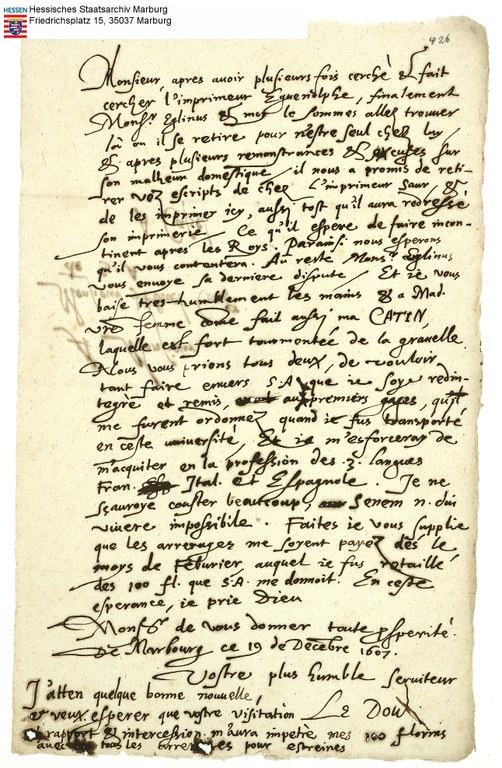 HESSEN
Hessisches Staatsarchiv Marburg
Friedrichsplatz 15, 35037 Marburg
426
Monsieur, apres avoir plusieurs fois cerché & fait
cercher l'imprimeur Eguenolphe, finalement
Monsr. Eglinus & moy le sommes allez trouver
là ou il se retire pour n'estre seul chez luy
& apres plusieurs remonstrances & excuses sur
son malheur domestique, il nous a promis de reti-
rer voz escripts de chez l'imprimeur Saur, &
de les imprimer icy, aussi tost qu'il aura redressé
son imprimerie. Ce qu'il espere de faire incon-
tinent apres les Roys. Parainsi nous esperons
qu'il vous contentera. Au reste Monsr. Eglinus
vous envoye sa derniere dispute. Et ie vous
baise tres-humblement les mains & a Mad.
vre femme come fait aussi ma CATIN,
laquelle est fort tourmentée de la gravelle.
Nous vous prions tous deux, de vouloir
tant faire envers S.A. que ie soye redin-
tegré et remis aux premiers gages, qu'il
me furent ordonnez quand ie fus transporté
en ceste université, Et ie m'esforcerap de
m'acquiter en la profession des 3. langues
Fran. Ital. et Espagnole. Je ne
sçauroye couster beaucoup, Senem n. diu
vivere impossibile. Faites ie vous supplie
que les arrerages me soyent payez dès le
moys de Feburier, auquel ie fus retaillé
des 100 fl. que S.A. me donnoit. En ceste
esperance, ie prie Dieu
Monsr. de vous donner toute psperité.
De Marbourg ce 19 de Decebre 1607.
Vostre plus humble serviteur
J'atten quelque bonne nouvelle,
& veux esperer que vostre visitation Le Doux
rapport & intercession m'aura impetré mes 100 florins
avec tous les arrerages pour estreines